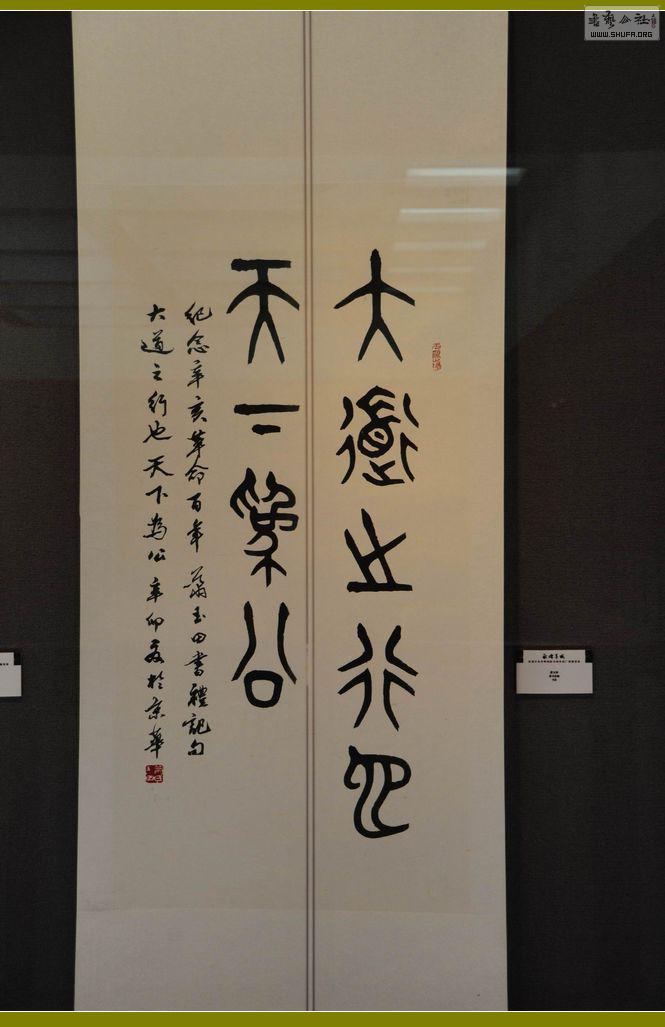 大道之行也
天下為公
紀念辛亥革命百年 蕭玉田書禮記句
大道之行也天下為公 辛卯夏於京華
書藝公社
WWW.SHUFA.ORG